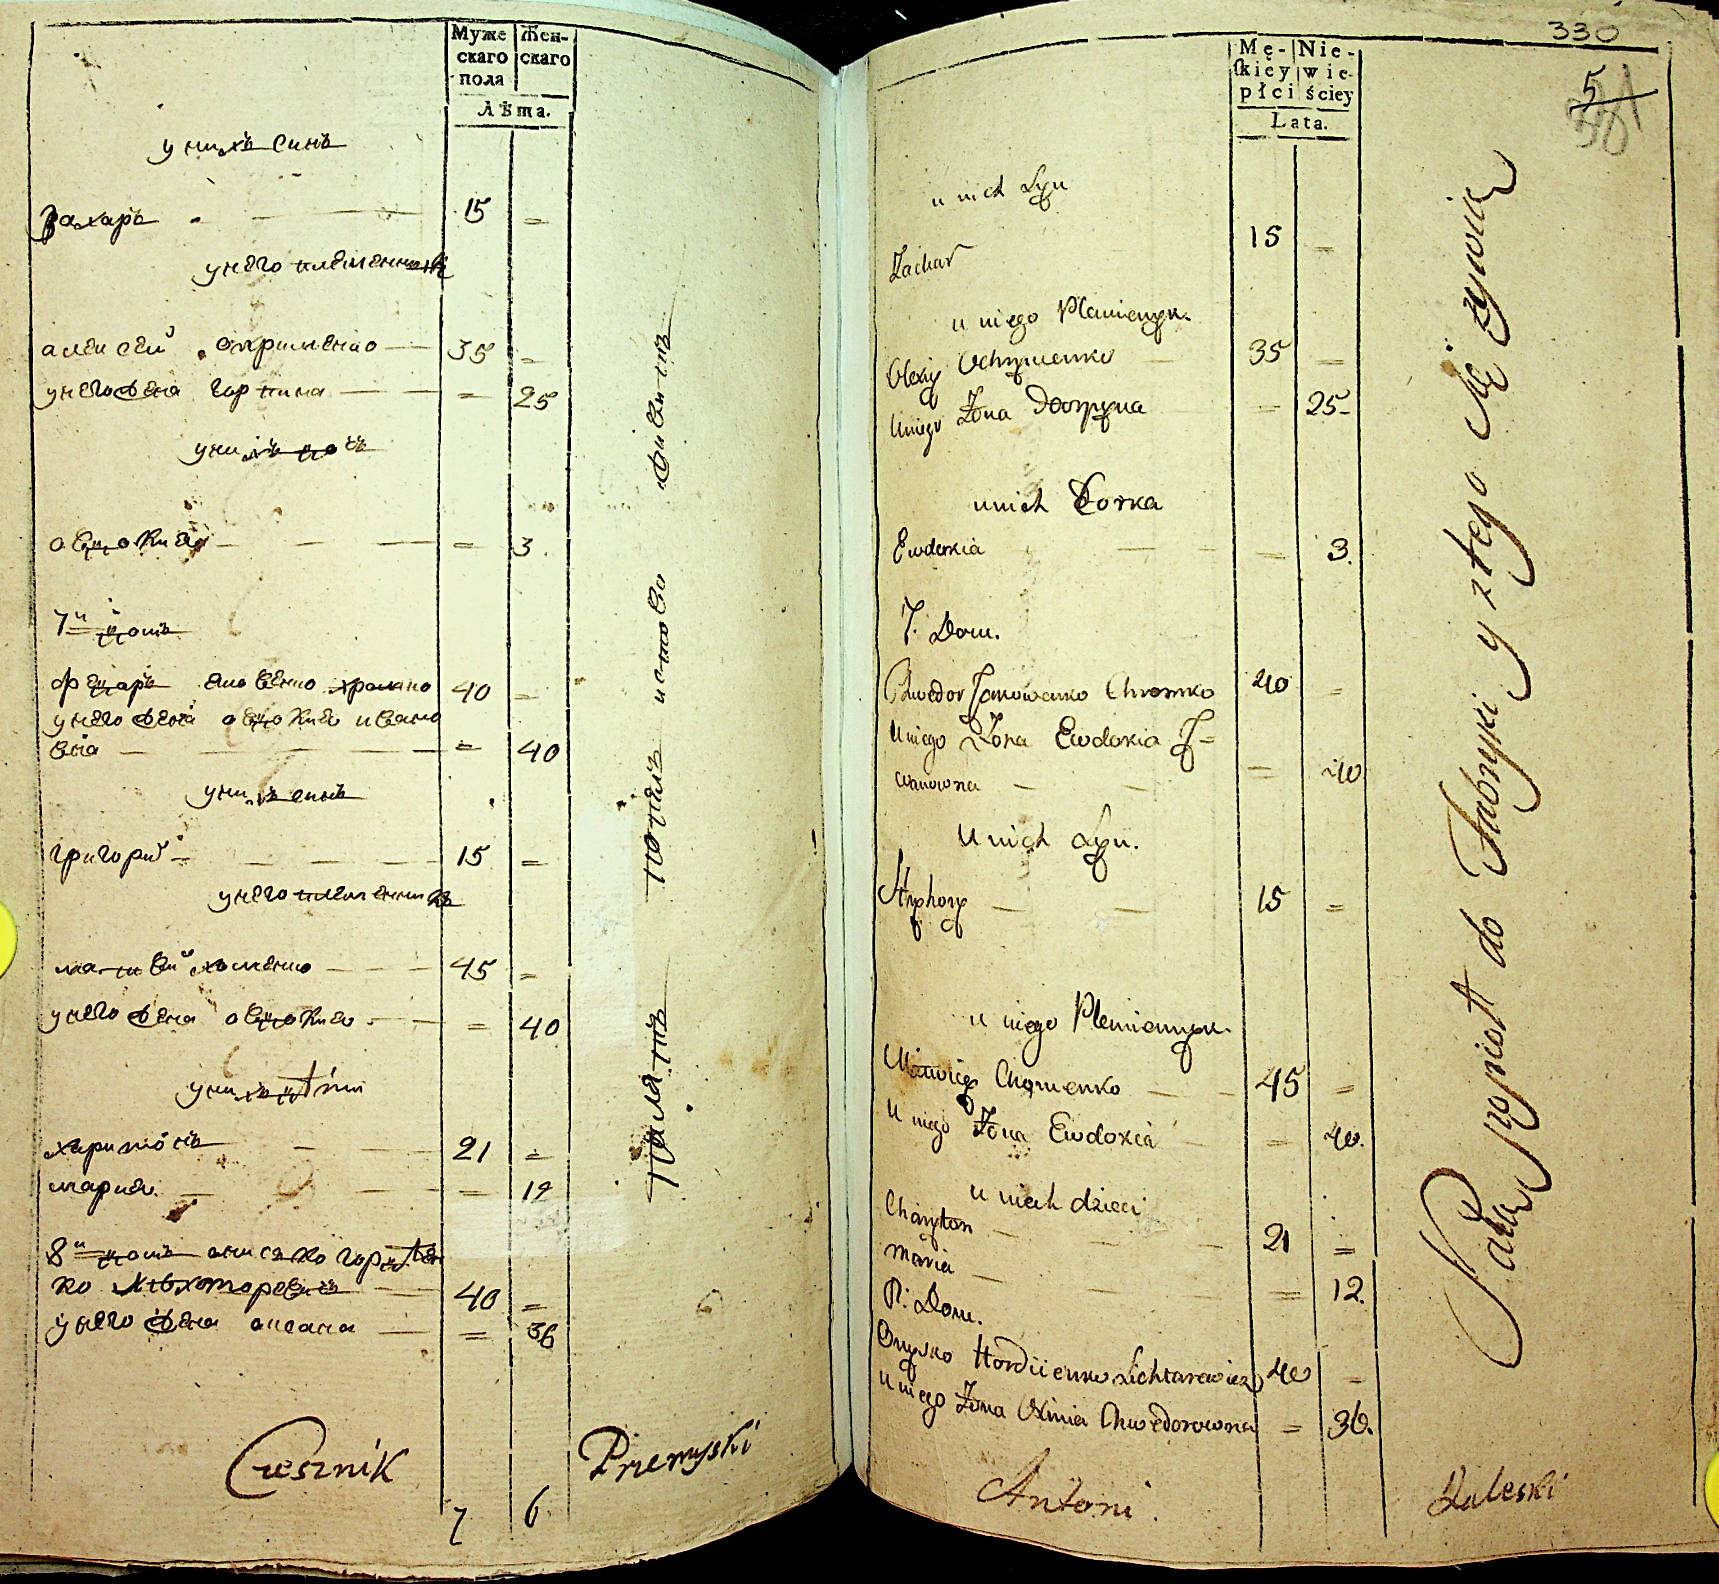 Муже
скаго
пола
Жен-
скаго
Лѣта.
у нихъ синъ
Захаръ 15 =
у него племенникъ
алексей охрименко 35 =
у него жена горпина = 25
у нихъ дочь
авдокия = 3.
7й домъ
федоръ яковенко хромко 40 =
у него жена авдокия ивано
вна = 40
у нихъ синъ
григорий 15 =
у него племенникъ
матвей хоменко 45 =
у него жена авдокия = 40
у нихъ дѣти
харитонъ 21 =
мария = 12
8й домъ онисько гордѣен
ко лихторевичъ 40 =
у него жена оксана = 36
Czesznik Przemyski
7 6
330
5
Mę-
skiey
płci
Nie-
wie-
ściey
Lata.
u nich Syn
Zachar 15 =
u niego Plemienyk.
Olexiy Ochrymenko 35 =
U niego Żona Horpyna = 25
u nich Corka
Ewdokia = 3.
7. Dom.
Chwedor Jakowenko Chromko 40 =
U niego Żona Ewdokia I=
wanowna = 40
U nich Syn.
Hryhory 15 =
u niego Plemiennyk.
Matwiey Chomenko 45 =
U niego Żona Ewdoxia = 40.
u nich dzieci
Charyton 21 =
Maria = 12.
8: Dom.
Onysko Hordiienko Lichtarewicz 40 =
U niego Żona Oxinia Chwedorowna = 36.
Antoni Zaleski
Płat poniat do Fabryki y z tego się żywią